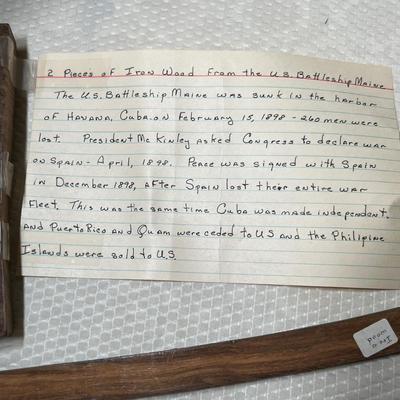 2 Pieces of Iron Wood From the U.S. Battleship Maine
The U.S. Battleship Maine was sunk in the harbor
of Havana, Cuba. on February 15, 1898 - 260 men were
lost. President McKinley asked Congress to declare war
on Spain - April, 1898. Peace was signed with Spain
in December 1898, after Spain lost their entire war
fleet. This was the same time Cuba was made independent.
and Puerto Rico and Quam were ceded to US and the Philipine
Islands were sold to U.S.
Iron
wood